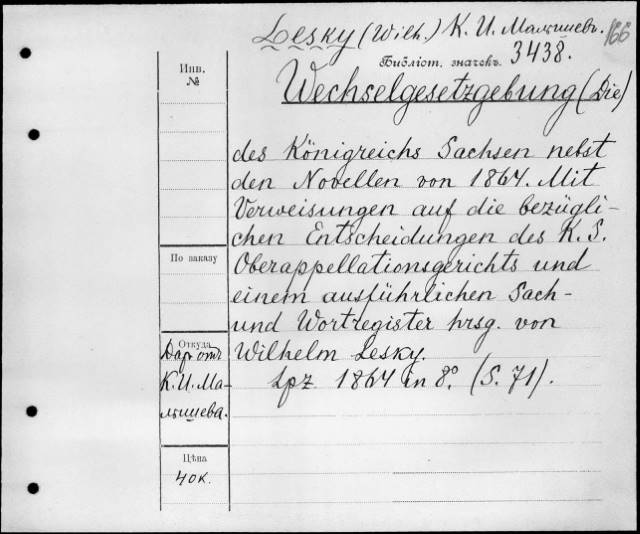 Lesky (Wilh.) К. И. Малышевъ. 166
Библіот. значекъ. 3438.
Wechselgesetzgebung (Die)
des Königreichs Sachsen nebst
den Novellen von 1864. Mit
Verweisungen auf die bezügli-
chen Entscheidungen des K. S.
Oberappellationsgerichts und
einem ausführlichen Sach-
und Wortregister hrsg. von
Wilhelm Lesky.
Lpz. 1864 in 8º. (S. 71).
Инв.
№
По заказу
Откуда
Даръ отъ
К. И. Ма-
лышева.
Цѣна
40 к.